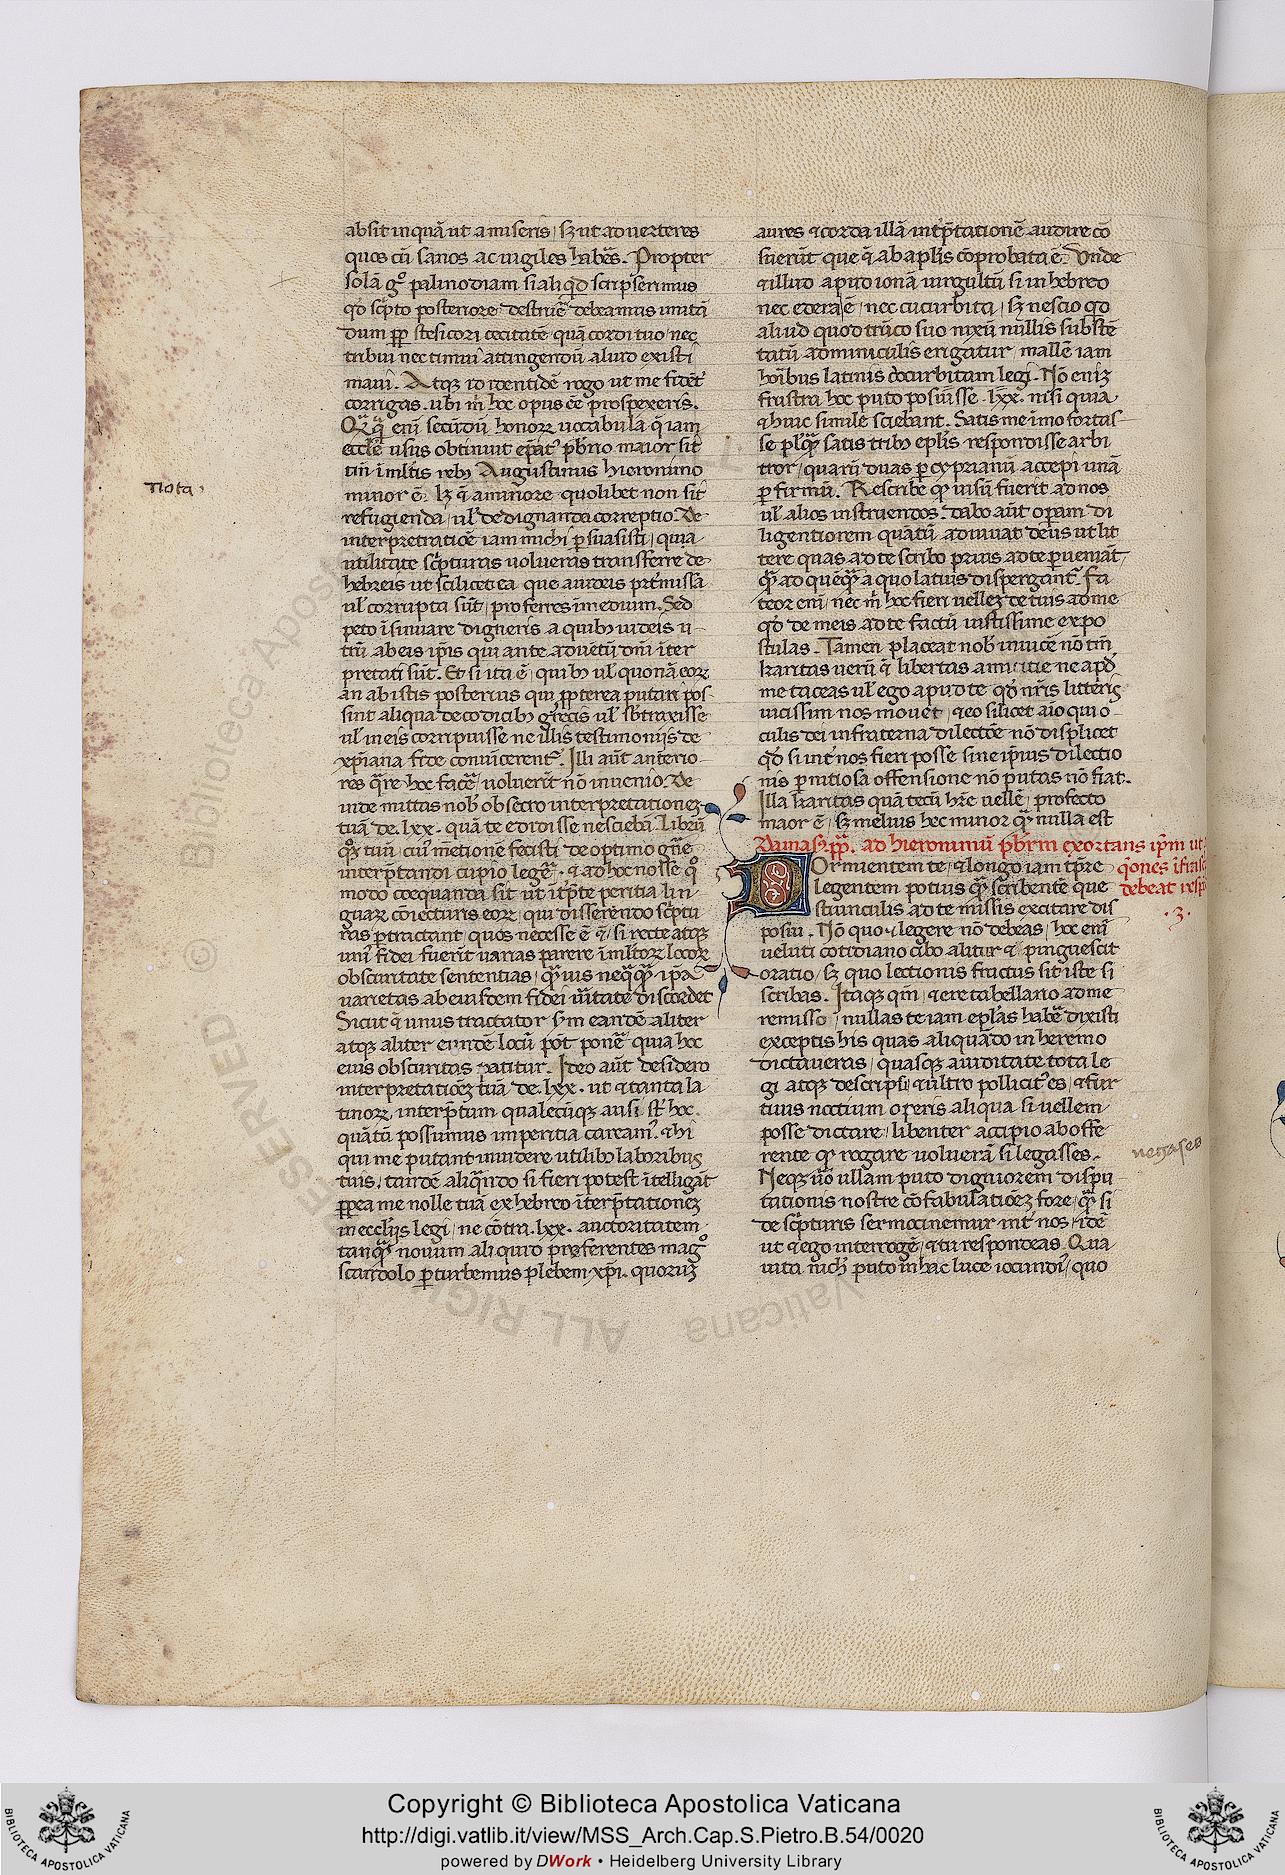 absit inquā ut amiseris, sꝫ ut adverteres
quos cū sanos ac vigiles habēs. Propter
solā gͦ palinodiam si aliqͥd scripserimus
qd̄ scp̄to posteriore destruē debeamus imitā
dum ꝓp̄ stesicori cecitatē quā cordi tuo nec
tribui nec timui attingendū aliud existi
mavi. Atqꝫ id identidē rogo ut me fidēt̄
corrigas. ubi m̄ hoc opus eē prospexeris.
Qꝗ̄ꝗ̄ enī secūdū honoꝝ vocabula q̄ iam
eccl̄ie usus obtinuit ep̄at̄ pb̄rio maior sit
tn̄ ī ml̄tis rebꝫ Augustinus hieronimo
minor ē. lꝫ ⁊̄ a minore quolibet non sit
refugienda, ul̄ dedignanda correptio. De
interpretatiōe iam michi ꝑsuasisti, quia
utilitate scp̄turas volueras transferre de
hebreis ut scilicet ea que a iudeis pretmissa
ul̄ corrupta sūt, proferres in medium. Sed
peto īsinuare digneris a quibꝫ iudeis u
trū ab eis ip̄is qui ante adventū dn̄i īter
pretati sūt. Et si ita ē, quibꝫ ul̄ quonā eoꝝ
an ab istis posterius qui ꝓpterea putari pos
sint aliqua de codicibꝫ grecis ul̄ sb̄traxisse
ul̄ in eis corripuisse ne illis testimoniis de
xp̄iana fide convīcerent᷑. Illi aūt anterio
res q̄re hoc facē voluerīt nō invenio. De
inde mittas nob̄ obsecro interpretationeꝫ
tuā de .lxx. quā te edidisse nesciebā. Librū
qͦꝫ tuū cuiꝰ mētione fecisti de optimo gn̄e
interp̄tandi cupio legē, ⁊ ad hoc nosse qͦ
modo coequanda sit ī īterp̄te peritia lin
guaꝝ cōiecturis eoꝝ, qui disserendo scp̄tu
ras ꝑtractant, quos necesse ē ⁊̄ si recte atqꝫ
uniꝰ fidei fuerīt varias parere ī ml̄toꝝ locoꝝ
obscuritate sententias, qͣꝫvis neqͣqͣꝫ ip̄a
varietas ab eiusdem fidei ūitate discordet
Sicut ⁊̄ unus tractator s̄m eandē aliter
atqꝫ aliter eundē locū pōt ponē quia hoc
eius obscuritas patitur. Ideo aūt desidero
interpretatiōeꝫ tuā de .lxx. ut ⁊ tanta la
tinoꝝ interp̄tum qualecūqꝫ ausi st̄ hoc.
quātū possumus imperitia careamꝰ. ⁊ hi
qui me putant invidere utilibꝫ laboribus
tuis, tandē aliqn̄do si fieri potest ītelligāt
ꝓp̄ea me nolle tuā ex hebreo īterp̄tationeꝫ
in eccl̄iis legi, ne cōtra .lxx. auctoritatem
tanqͣꝫ novum aliquid preferentes magͦ
scandolo ꝑturbemus plebem xp̄i. quoruꝫ
Nota,
aures ⁊ corda illā interp̄tationē audire cō
suerūt que ⁊̄ ab apl̄is cōprobata ē. Unde
⁊ illud apud ionā virgultū si in hebreo
nec edera ē, nec cucurbita, sꝫ nescio qd̄
aliud quod trūco suo nixū nullis substē
tatū adminiculis erigatur, mallē iam
hoībus latinis cucurbitam legi. Nō enim
frustra hoc puto posuisse .lxx. nisi quia
⁊ huic simile sciebant. Satis me imo fortas
se plusqͣꝫ satis tribꝫ epl̄is respondisse arbi
tror, quarū duas ꝑ cyprianū accepi unā
ꝑ firmū. Rescribe qd̄ visū fuerit ad nos
ul̄ alios instruendos. dabo aūt oꝑam di
ligentiorem quātū adiuvat deus ut lit
tere quas ad te scribo prius ad te ꝑveniāt
qͣꝫ ad quēqͣꝫ a quo latius dispergant᷑. Fa
teor enī, nec m̄ hoc fieri velleꝫ de tuis ad me
qd̄ de meis ad te factū iustissime expo
stulas. Tamen placeat nob̄ invicē nō tm̄
karitas verū ⁊̄ libertas amicitie ne apd̄
me taceas ul̄ ego apud te qd̄ nr̄is litteris
vicissim nos movet, ⁊ eo silicet aīo qui o
culis dei in fraterna dilectiōe nō displicet
qd̄ si inter nos fieri posse sine ip̄ius dilectio
nis ꝑnitiosa offensione nō putas nō fiat.
Illa karitas quā tecū hr̄e vellē, profecto
maior ē, sꝫ melius hec minor qͣꝫ nulla est
Damasꝰ pp̄. ad hieronimū pb̄rm exortans ip̄m ut
q̄ones īfrasc
debeat resp
.3.
Dormientem te, ⁊ longo iam tp̄re
legentem potius qͣꝫ scribentē que
stiunculis ad te missis excitare dis
posui. Nō quo ⁊ legere nō debeas, hoc enī
veluti cotidiano cibo alitur ⁊ pinguescit
oratio, sꝫ quo lectionis fructus sit iste si
scribas. Itaqꝫ qm̄, ⁊ ere tabellario ad me
remisso, nullas te iam epl̄as habē dixisti
exceptis his quas aliquādo in heremo
dictaveras, quasqꝫ aviditate tota le
gi atqꝫ descripsi, ⁊ ultro pollicitꝰ es, ⁊ fur
tivis noctium operis aliqua si vellem
posse dictare, libenter accipio ab offe
rente qd̄ rogare volueram si legasses.
Neqꝫ vō ullam puto digniorem dispu
tationis nostre cōfabulatiōeꝫ fore, qͣꝫ si
de scp̄turis sermocinemur inter nos, idē
ut ⁊ ego interrogē, ⁊ tu respondeas. Qua
vita nichil puto in hac luce iocundiꝰ, quo
negases
Copyright © Biblioteca Apostolica Vaticana
http://digi.vatlib.it/view/MSS_Arch.Cap.S.Pietro.B.54/0020
powered by DWork • Heidelberg University Library
BIBLIOTECA APOSTOLICA VATICANA
BIBLIOTECA APOSTOLICA VATICANA
© Biblioteca Apostolica Vaticana
ALL RIGHTS RESERVED